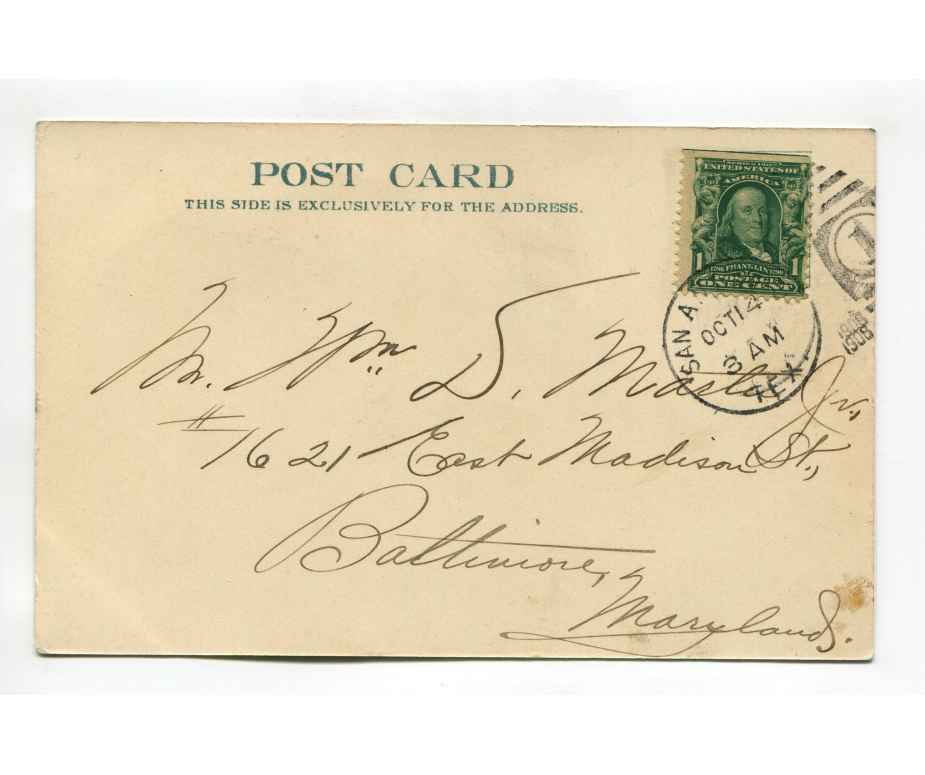 POST CARD
THIS SIDE IS EXCLUSIVELY FOR THE ADDRESS.
UNITED STATES OF
AMERICA
1 FRANKLIN 1
POSTAGE
ONE CENT
SAN A
OCT 14
8 AM
TEX.
1
1906
Mr. Wm. D. Jr.,
# 1621 East Madison St.,
Baltimore,
Maryland.